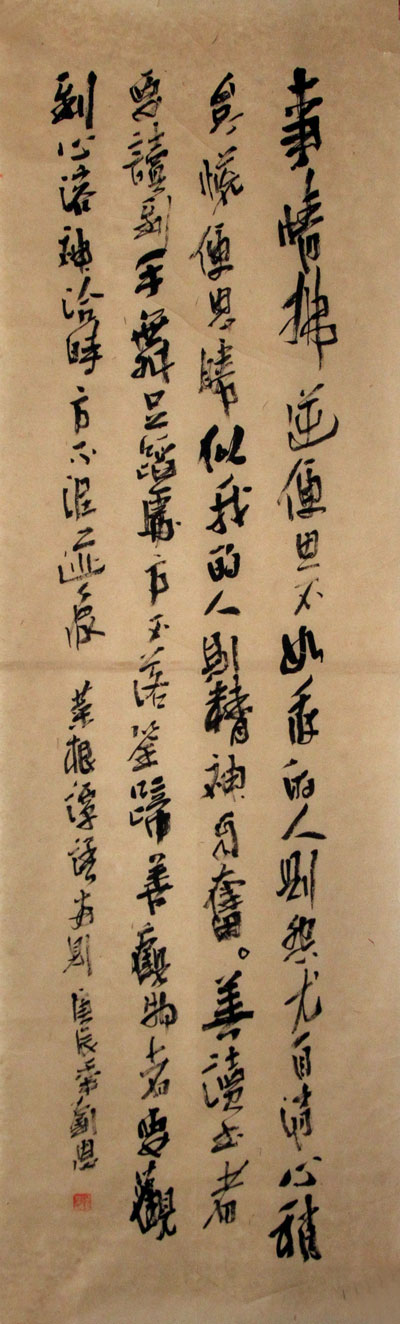 事情拂逆便思不如我的人則怨尤自消心稍
怠慌便思勝似我的人則精神自奮。善讀書者
要讀到手舞足蹈處方不落筌蹄善觀物者要觀
到心溶神洽時方不泥迹 菜根譚語兩則 庚辰